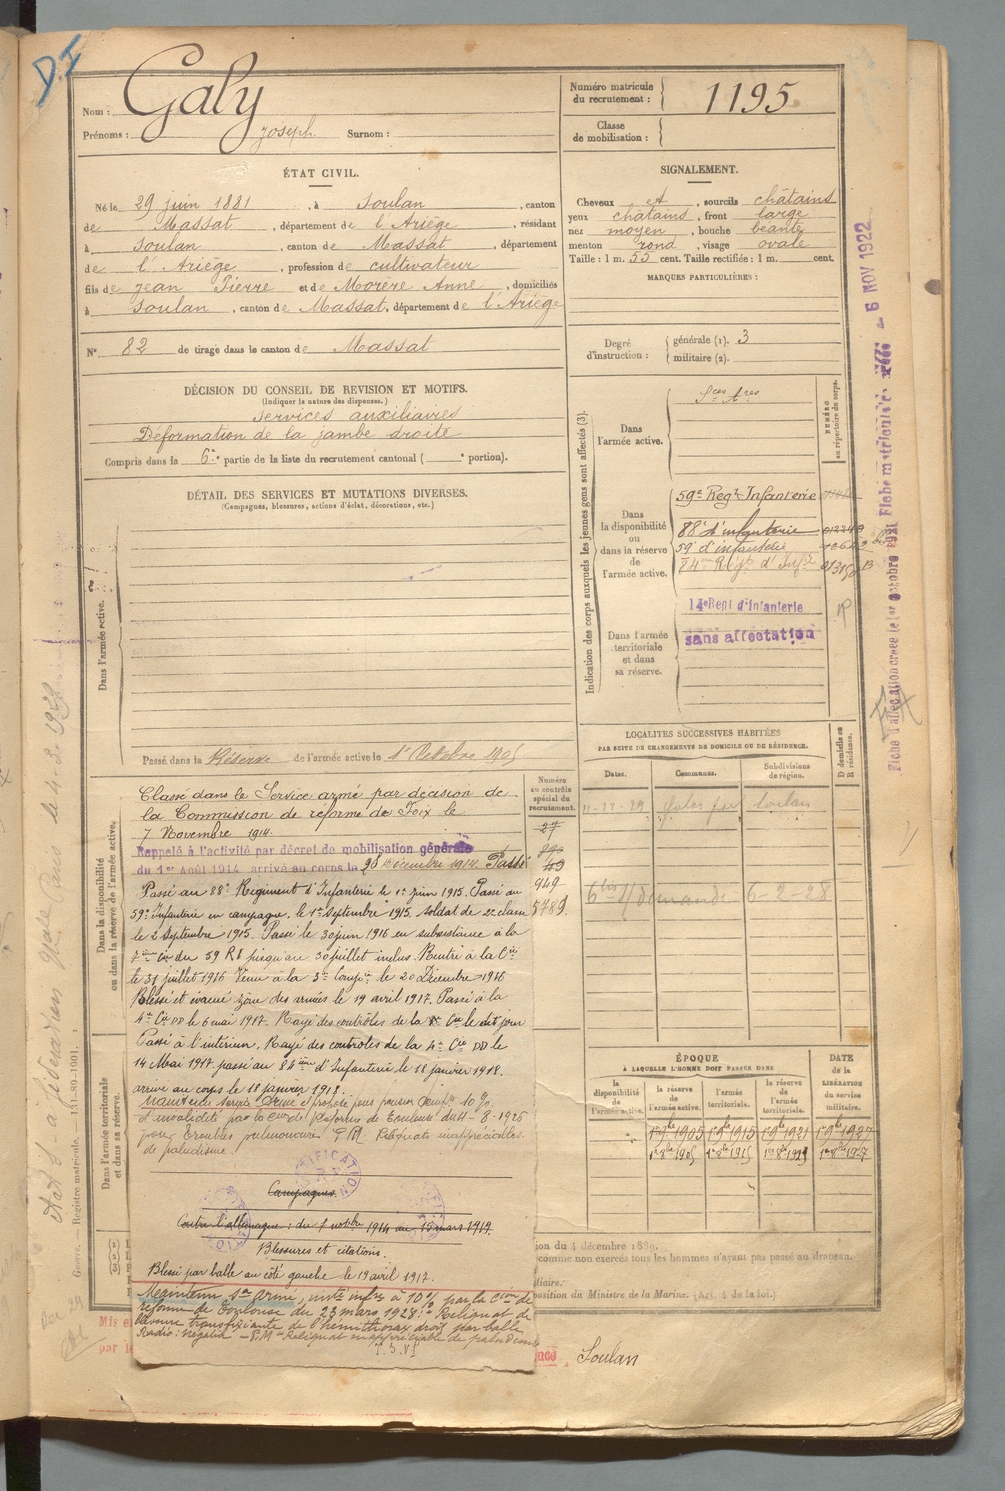 DI
Nom : Galy
Prénoms : Joseph Surnom :
Numéro matricule du recrutement : 1195
Classe de mobilisation :
ÉTAT CIVIL.
Né le 29 juin 1881, à Soulan, canton
de Massat, département de l'Ariège, résidant
à Soulan, canton de Massat, département
de l'Ariège, profession de cultivateur
fils de Jean Pierre et de Morère Anne, domiciliés
à Soulan, canton de Massat, département de l'Ariège
N° 82 de tirage dans le canton de Massat
SIGNALEMENT.
Cheveux et, sourcils châtains
yeux châtains, front large
nez moyen, bouche béante
menton rond, visage ovale
Taille : 1 m. 55 cent. Taille rectifiée : 1 m. cent.
MARQUES PARTICULIÈRES :
Degré d'instruction : générale (1). 3
militaire (2).
DÉCISION DU CONSEIL DE REVISION ET MOTIFS.
(Indiquer la nature des dispenses.)
Services auxiliaires
Déformation de la jambe droite
Compris dans la 6e partie de la liste du recrutement cantonal ( portion).
DÉTAIL DES SERVICES ET MUTATIONS DIVERSES.
(Campagnes, blessures, actions d'éclat, décorations, etc.)
Dans l'armée active.
Indication des corps auxquels les jeunes gens sont affectés (3).
NUMÉRO au répertoire du corps.
Dans l'armée active.
Sces Ares
Dans la disponibilité ou dans la réserve de l'armée active.
59e Régt Infanterie
88e d'infanterie
59e d'infanterie
Dans l'armée territoriale et dans sa réserve.
14e Regt d'Infanterie
sans affectation
Passé dans la Réserve de l'armée active le 1er Octobre 1905
Dans la disponibilité ou dans la réserve de l'armée active.
Numéro au contrôle spécial du recrutement.
27
949
5789.
Classé dans le Service armé par décision de
la Commission de réforme de Foix le
7 Novembre 1914.
Rappelé à l'activité par décret de mobilisation générale
du 1er Août 1914 arrivé au corps le Décembre 1914. Passé
Passé au 88e Régiment d'Infanterie le 1er Juin 1915. Passé au
59e Infanterie en campagne, le 1er Septembre 1915. Soldat de 2e classe
le 2 Septembre 1915. Passé le 30 juin 1916 en subsistance à la
7ème Cie du 59 RI jusqu'au 30 juillet inclus. Rentré à la Cie
le 31 juillet 1916 Venu à la 3e Compie le 20 Décembre 1916
Blessé et évacué zône des armées le 19 avril 1917. Passé à la
4e Cie DD le 6 mai 1917. Rayé des contrôles de la Cie le dit jour
Passé à l'intérieur. Rayé des contrôles de la 4e Cie DD le
14 Mai 1917. passé au 84ème d'Infanterie le 18 janvier 1918.
arrivé au corps le 18 janvier 1918.
Maintenu service Armé et proposé pour pension 10 %
d'invalidité par la de Réforme de Toulouse du 8-1926
pour troubles pulmonaires. Reliquats inappréciables
de paludisme.
Campagnes
Contre l'allemagne : du 1914 au 15 mars 1919.
Blessures et citations.
Blessé par balle au côté gauche le 19 avril 1917.
Maintenu Sce armé, infre à 10% par la Cion de
réforme de Toulouse du 23 mars 1928 : Reliquat de
transfixiante de l'hémithorax droit par balle
Radio : négatif - P.M. Reliquat inappréciable de paludisme
LOCALITÉS SUCCESSIVES HABITÉES
PAR SUITE DE CHANGEMENTS DE DOMICILE OU DE RÉSIDENCE.
Dates. Communes. Subdivisions de région. D domicile ou R résidence.
Soulan
demande 6-2-28
ÉPOQUE
À LAQUELLE L'HOMME DOIT PASSER DANS
la disponibilité de l'armée active. la réserve de l'armée active. l'armée territoriale. la réserve de l'armée territoriale.
DATE de la LIBÉRATION du service militaire.
1er 9bre 1905 1er 9bre 1915 1er 9bre 1921 1er 9bre 1927
Dans l'armée territoriale et dans sa réserve.
ion du 4 décembre 1889.
comme non exercés tous les hommes n'ayant pas passé au drapeau.
iliaire.
position du Ministre de la Marine. (Art. 4 de la loi.)
Guerre. — Registre matricule. 131-89-1901.
Mis e
par l
Soulan
Fiche d'affectation créée le 1er octobre 1921 Fiche matricule 6 NOV 1922